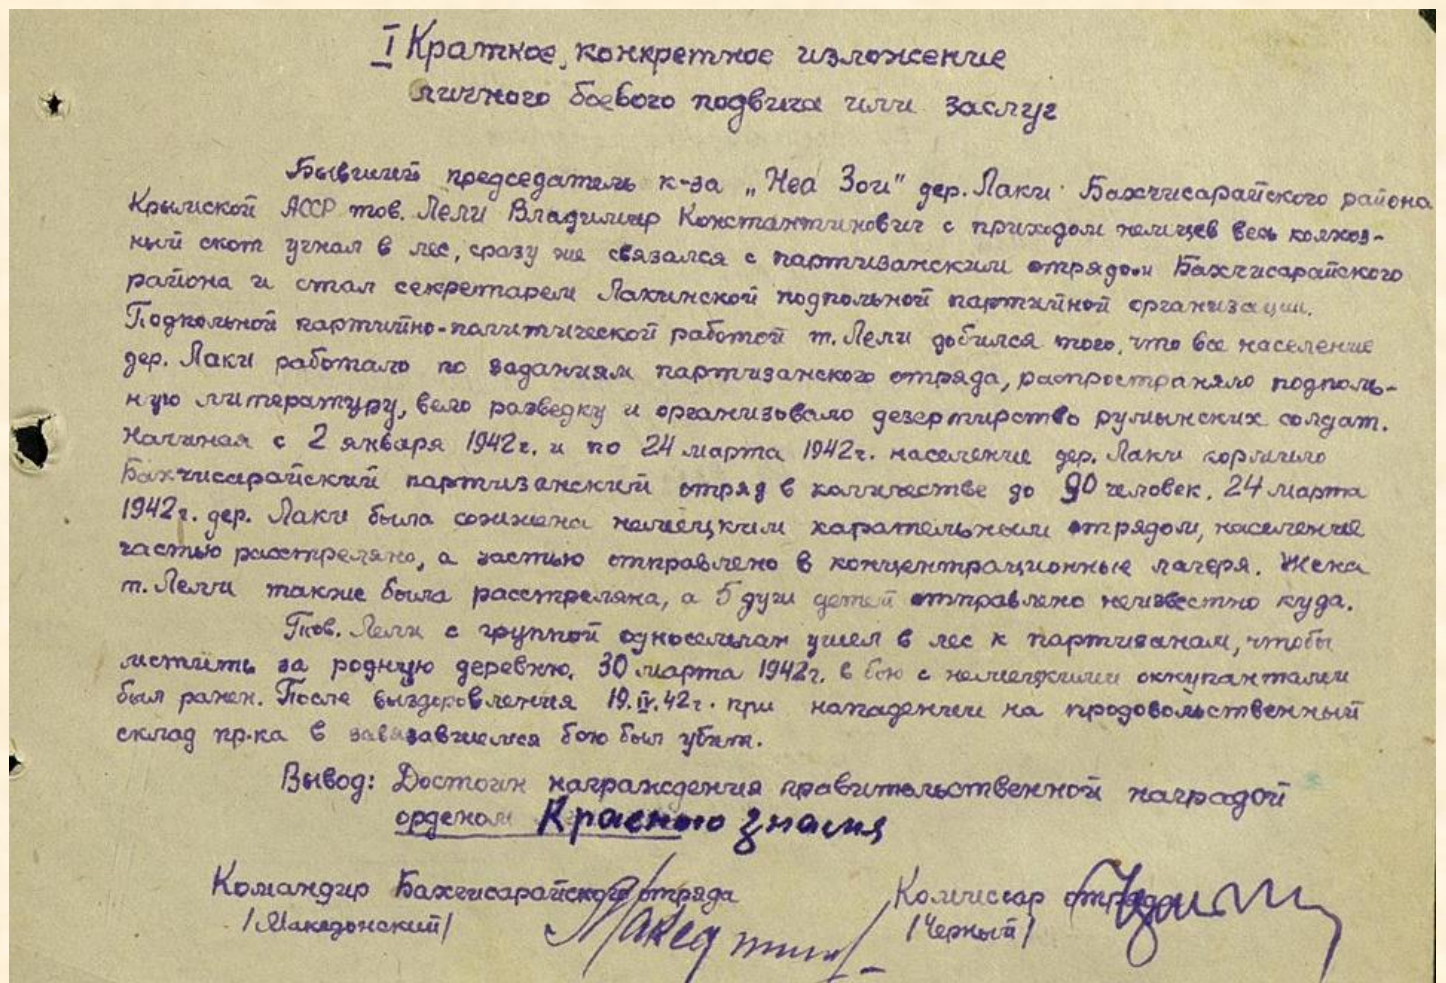 I Краткое, конкретное изложение
личного боевого подвига или заслуг
Бывший председатель к-за „Неа Зои" дер. Лаки Бахчисарайского района
Крымской АССР тов. Лели Владимир Константинович с приходом немцев весь колхоз-
ный скот угнал в лес, сразу же связался с партизанским отрядом Бахчисарайского
района и стал секретарем Лакинской подпольной партийной организации.
Подпольной партийно-политической работой т. Лели добился того, что все население
дер. Лаки работало по заданиям партизанского отряда, распространяло подполь-
ную литературу, вело разведку и организовало дезертирство румынских солдат.
Начиная с 2 января 1942г. и по 24 марта 1942г. население дер. Лаки кормило
Бахчисарайский партизанский отряд в количестве до 90 человек. 24 марта
1942г. дер. Лаки была сожжена немецким карательным отрядом, население
частью расстреляно, а частью отправлено в концентрационные лагеря. Жена
т. Лели также была расстреляна, а 5 душ детей отправлено неизвестно куда.
Тов. Лели с группой односельчан ушел в лес к партизанам, чтобы
мстить за родную деревню. 30 марта 1942г. в бою с немецкими оккупантами
был ранен. После выздоровления 19.IV.42г. при нападении на продовольственный
склад пр-ка в завязавшемся бою был убит.
Вывод: Достоин награждения правительственной наградой
орденом Красного Знамя
Командир Бахчисарайского отряда
Комиссар отряда
/Македонский/
/Черный/